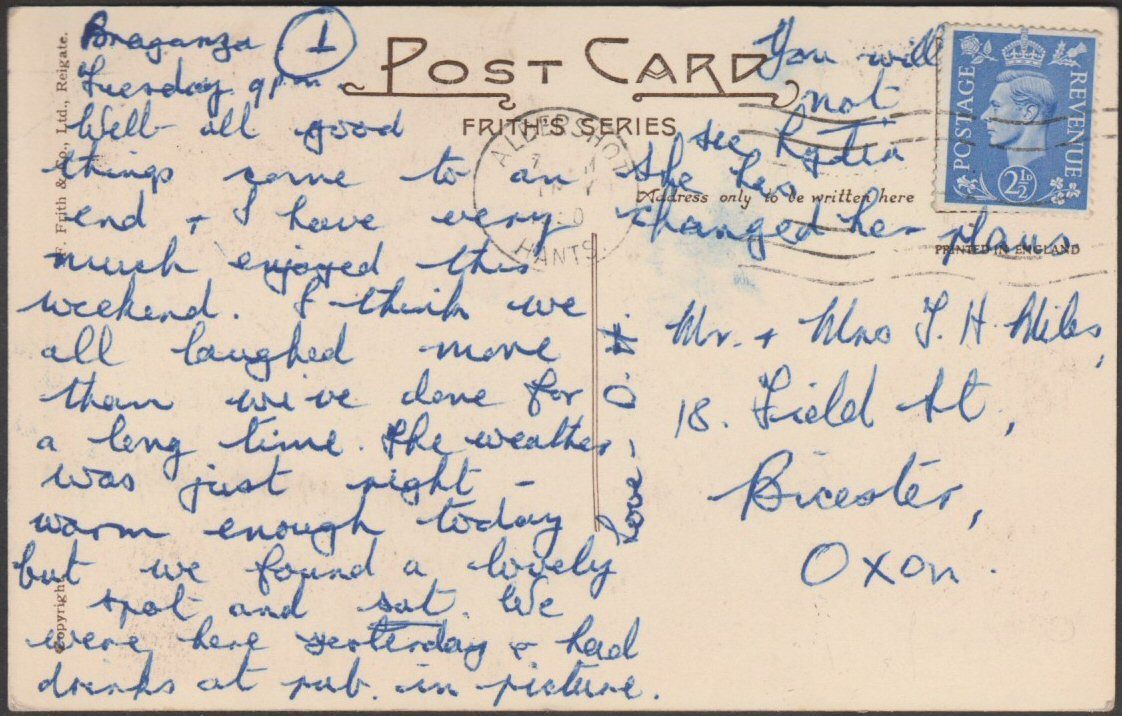 Braganza 1
Tuesday 9pm
Well all good
things come to an
end + I have very
much enjoyed this
weekend. I think we
all laughed more
than we've done for
a long time. The weather
was just right -
warm enough today
but we found a lovely
spot and sat. We
were here yesterday & had
drinks at pub in picture.
love,
POST CARD
FRITH'S SERIES
Address only to be written here
PRINTED IN ENGLAND
You will
not
see Lydia
She has
changed her plans
Mr. + Mrs T. H. Miles,
18. Field St,
Bicester,
Oxon.
POSTAGE
REVENUE
2½D
ALDERSHOT
HANTS.
F. Frith & Co., Ltd., Reigate.
Copyright